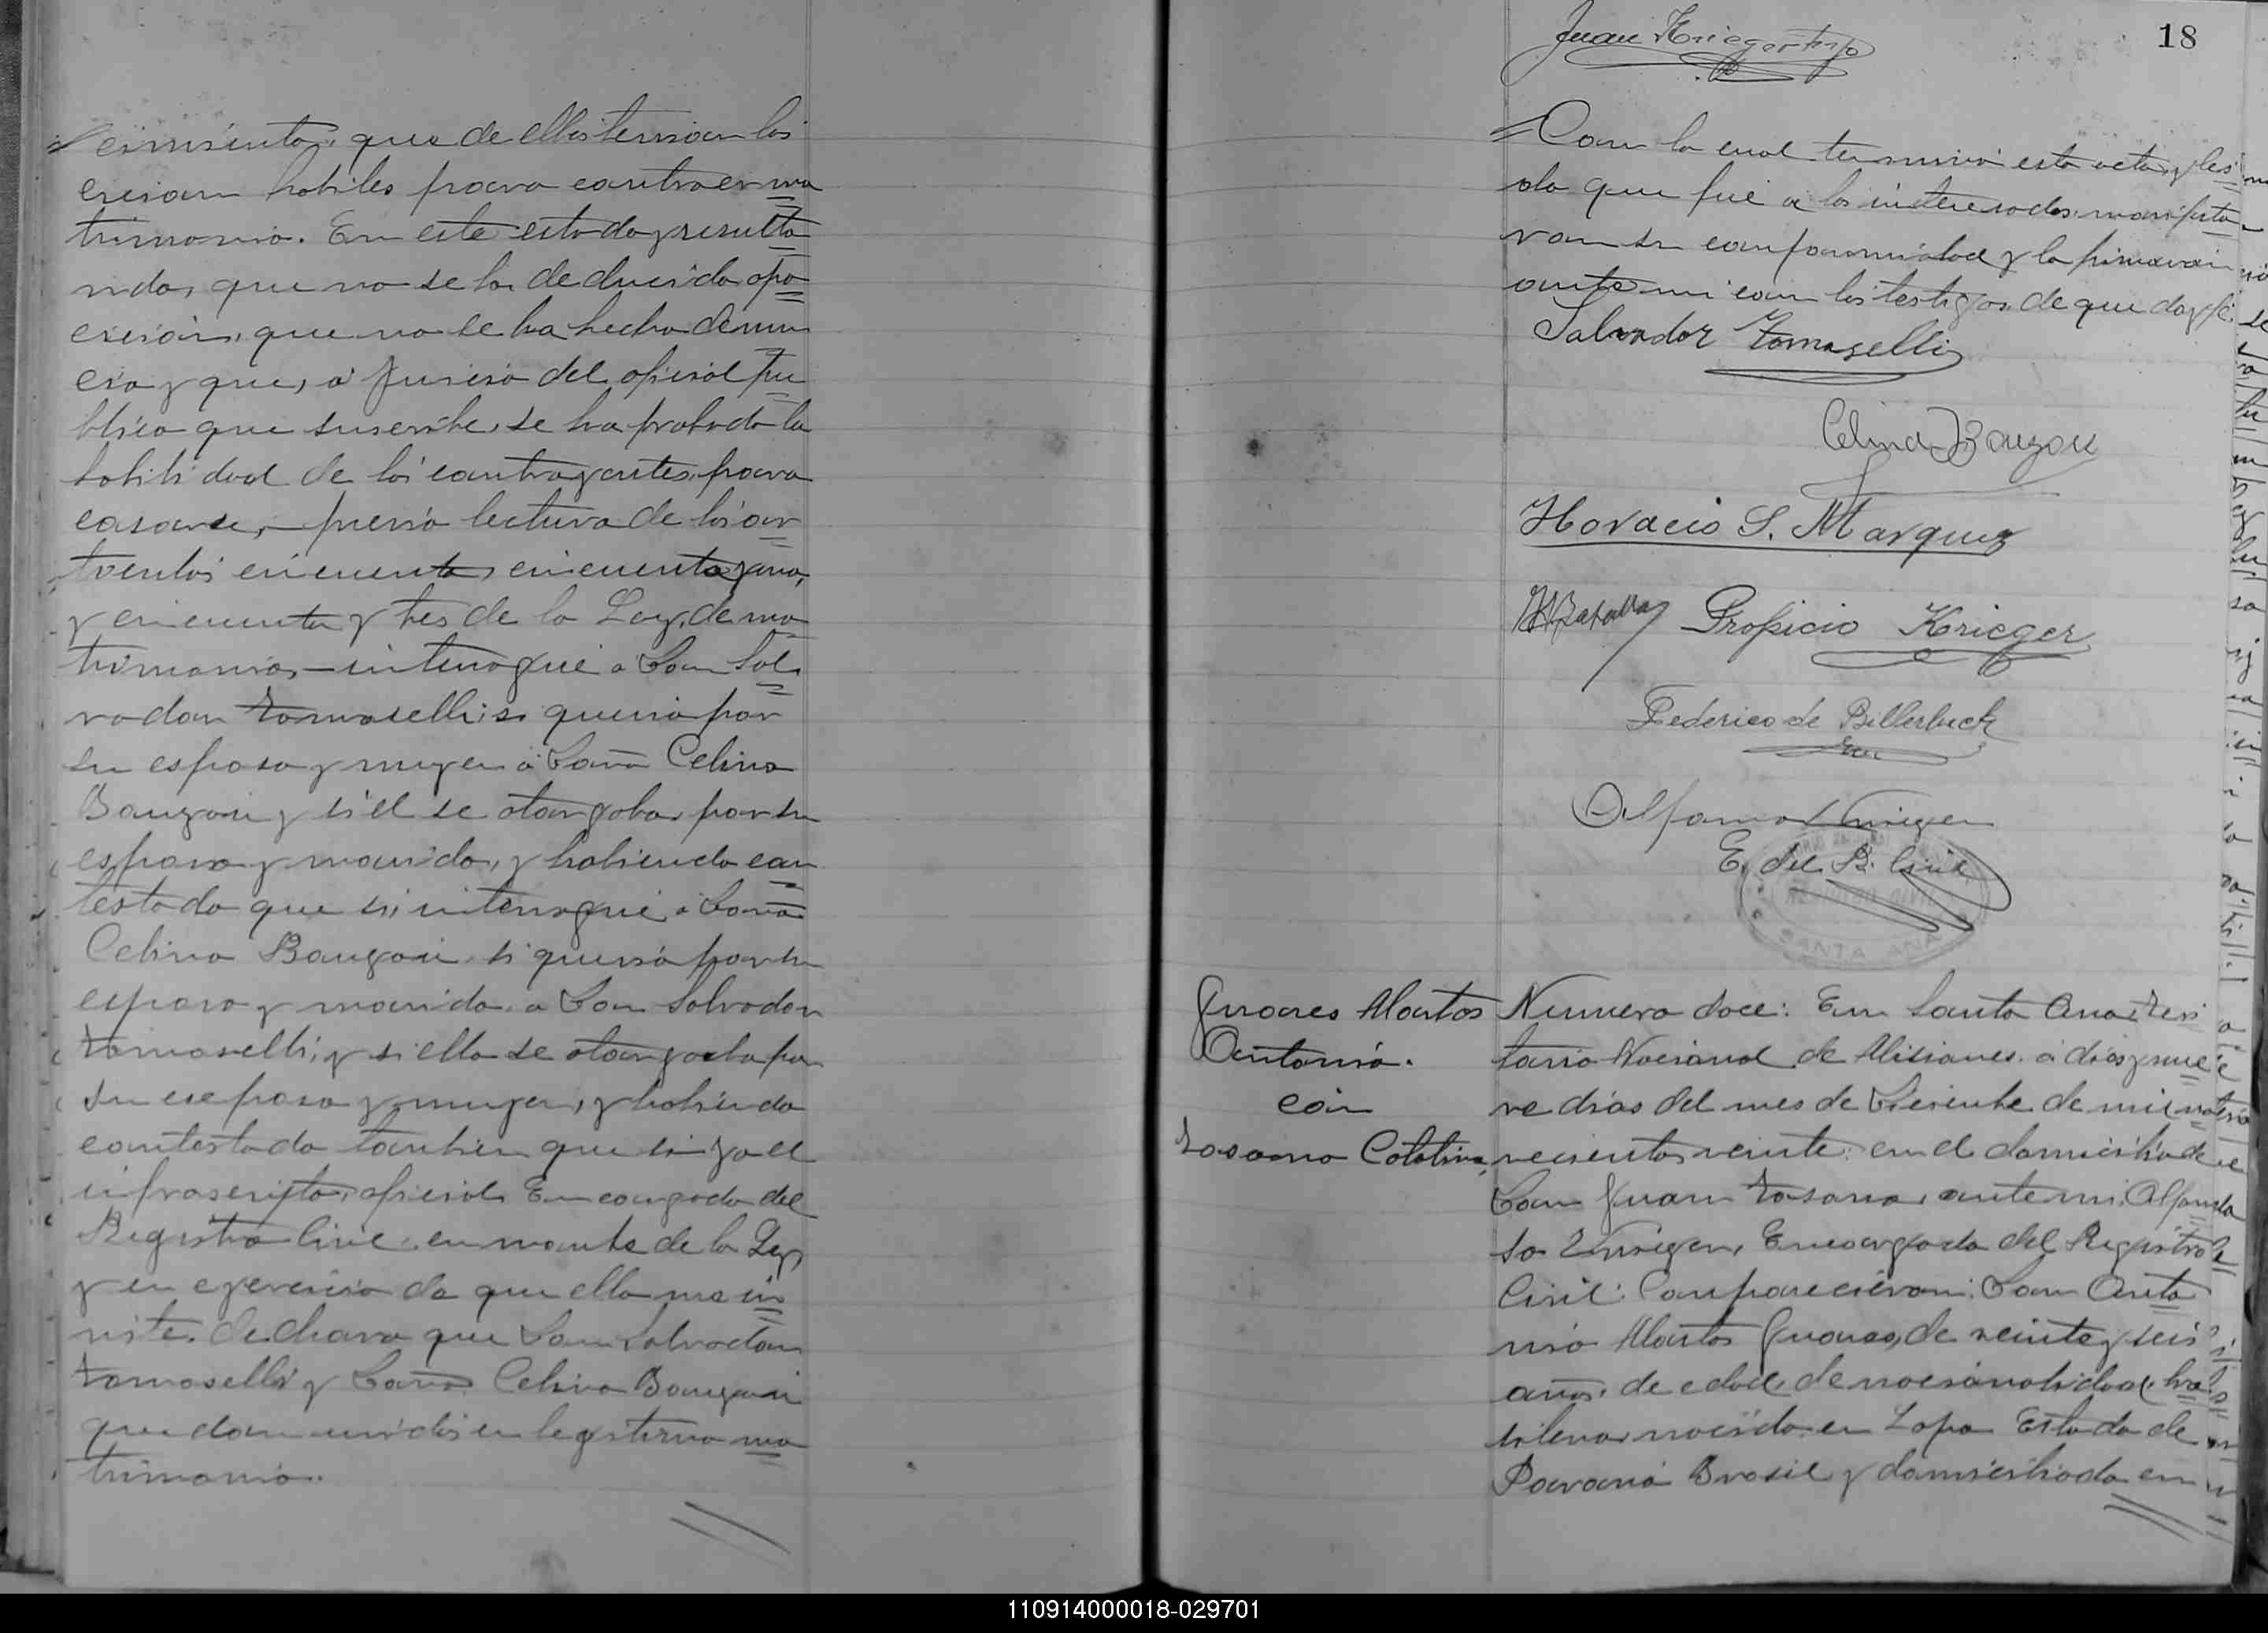 cimiento, que de ellos tenian los
creian habiles para contraer ma
trimonio. En este estado y resulta
ndo, que no se ha deducido opo
sicion, que no se ha hecho denun
cia y que, a juicio del oficial pu
blico que suscribe, se ha probado la
habilidad de los contrayentes para
casarse, previa lectura de los ar
ticulos cincuenta, cincuenta y uno,
y cincuenta y tres de la Ley, de ma
trimonio, interogué a Don Sal
vador Tomaselli si queria por
su esposa y mujer á Doña Celina
Bauzon y si él se otorgaba por su
esposo y marido, y habiendo con
testado que si, interogué a Doña
Celina Bauzon si queria por su
esposo y marido a Don Salvador
Tomaselli, y si ella se otorgaba por
su esposa y mujer, y habiendo
contestado tambien que si yo el
infrascripto, oficial Encargado del
Registro Civil, en nombre de la Ley
y en ejercicio de que ella me in
viste, declaro que Don Salvador
Tomaselli y Doña Celina Bauzon
quedan unidos en legitimo ma
trimonio.
18
Juan Krieger hijo
Con lo cual terminó esta acta, y lei
da que fué a los interesados, manifesta
ron su conformidad y la firmaron
ante mi con los testigos de que doy fé.
Salvador Tomaselli
Celina Bauzon
Horacio S. Marquez
Proficio Krieger
Federico de Billerbeck
Alfonso
E. del R. Civil
REGISTRO CIVIL
SANTA ANA
Juares Martos
Antonio.
con
Tosano Catalina
Numero doce: En Santa Ana, Teri
torio Nacional de Misiones, a diez y nue
ve dias del mes de Diciembre de mil no
vecientos veinte: en el domicilio de
Don Juan Tosano, ante mi, Alfon
so Encargado del Registro
Civil: Comparecieron: Don Anto
nio Martos Juares, de veinte y seis
años, de edad, de nacionalidad, bra
silena, nacido en Lapa Estado de
Paraná Brasil y domiciliado en
110914000018-029701